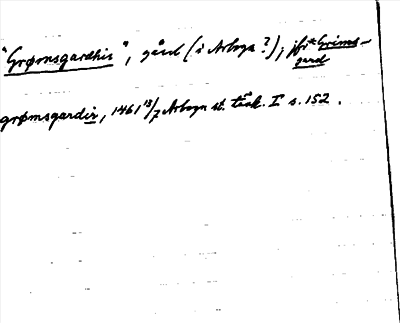 "Grømsgardhis", gård (i Arboga?), jfr *Grims-
gard
grømsgardir, 1461 13/7 Arboga st. tänk. I s. 152.